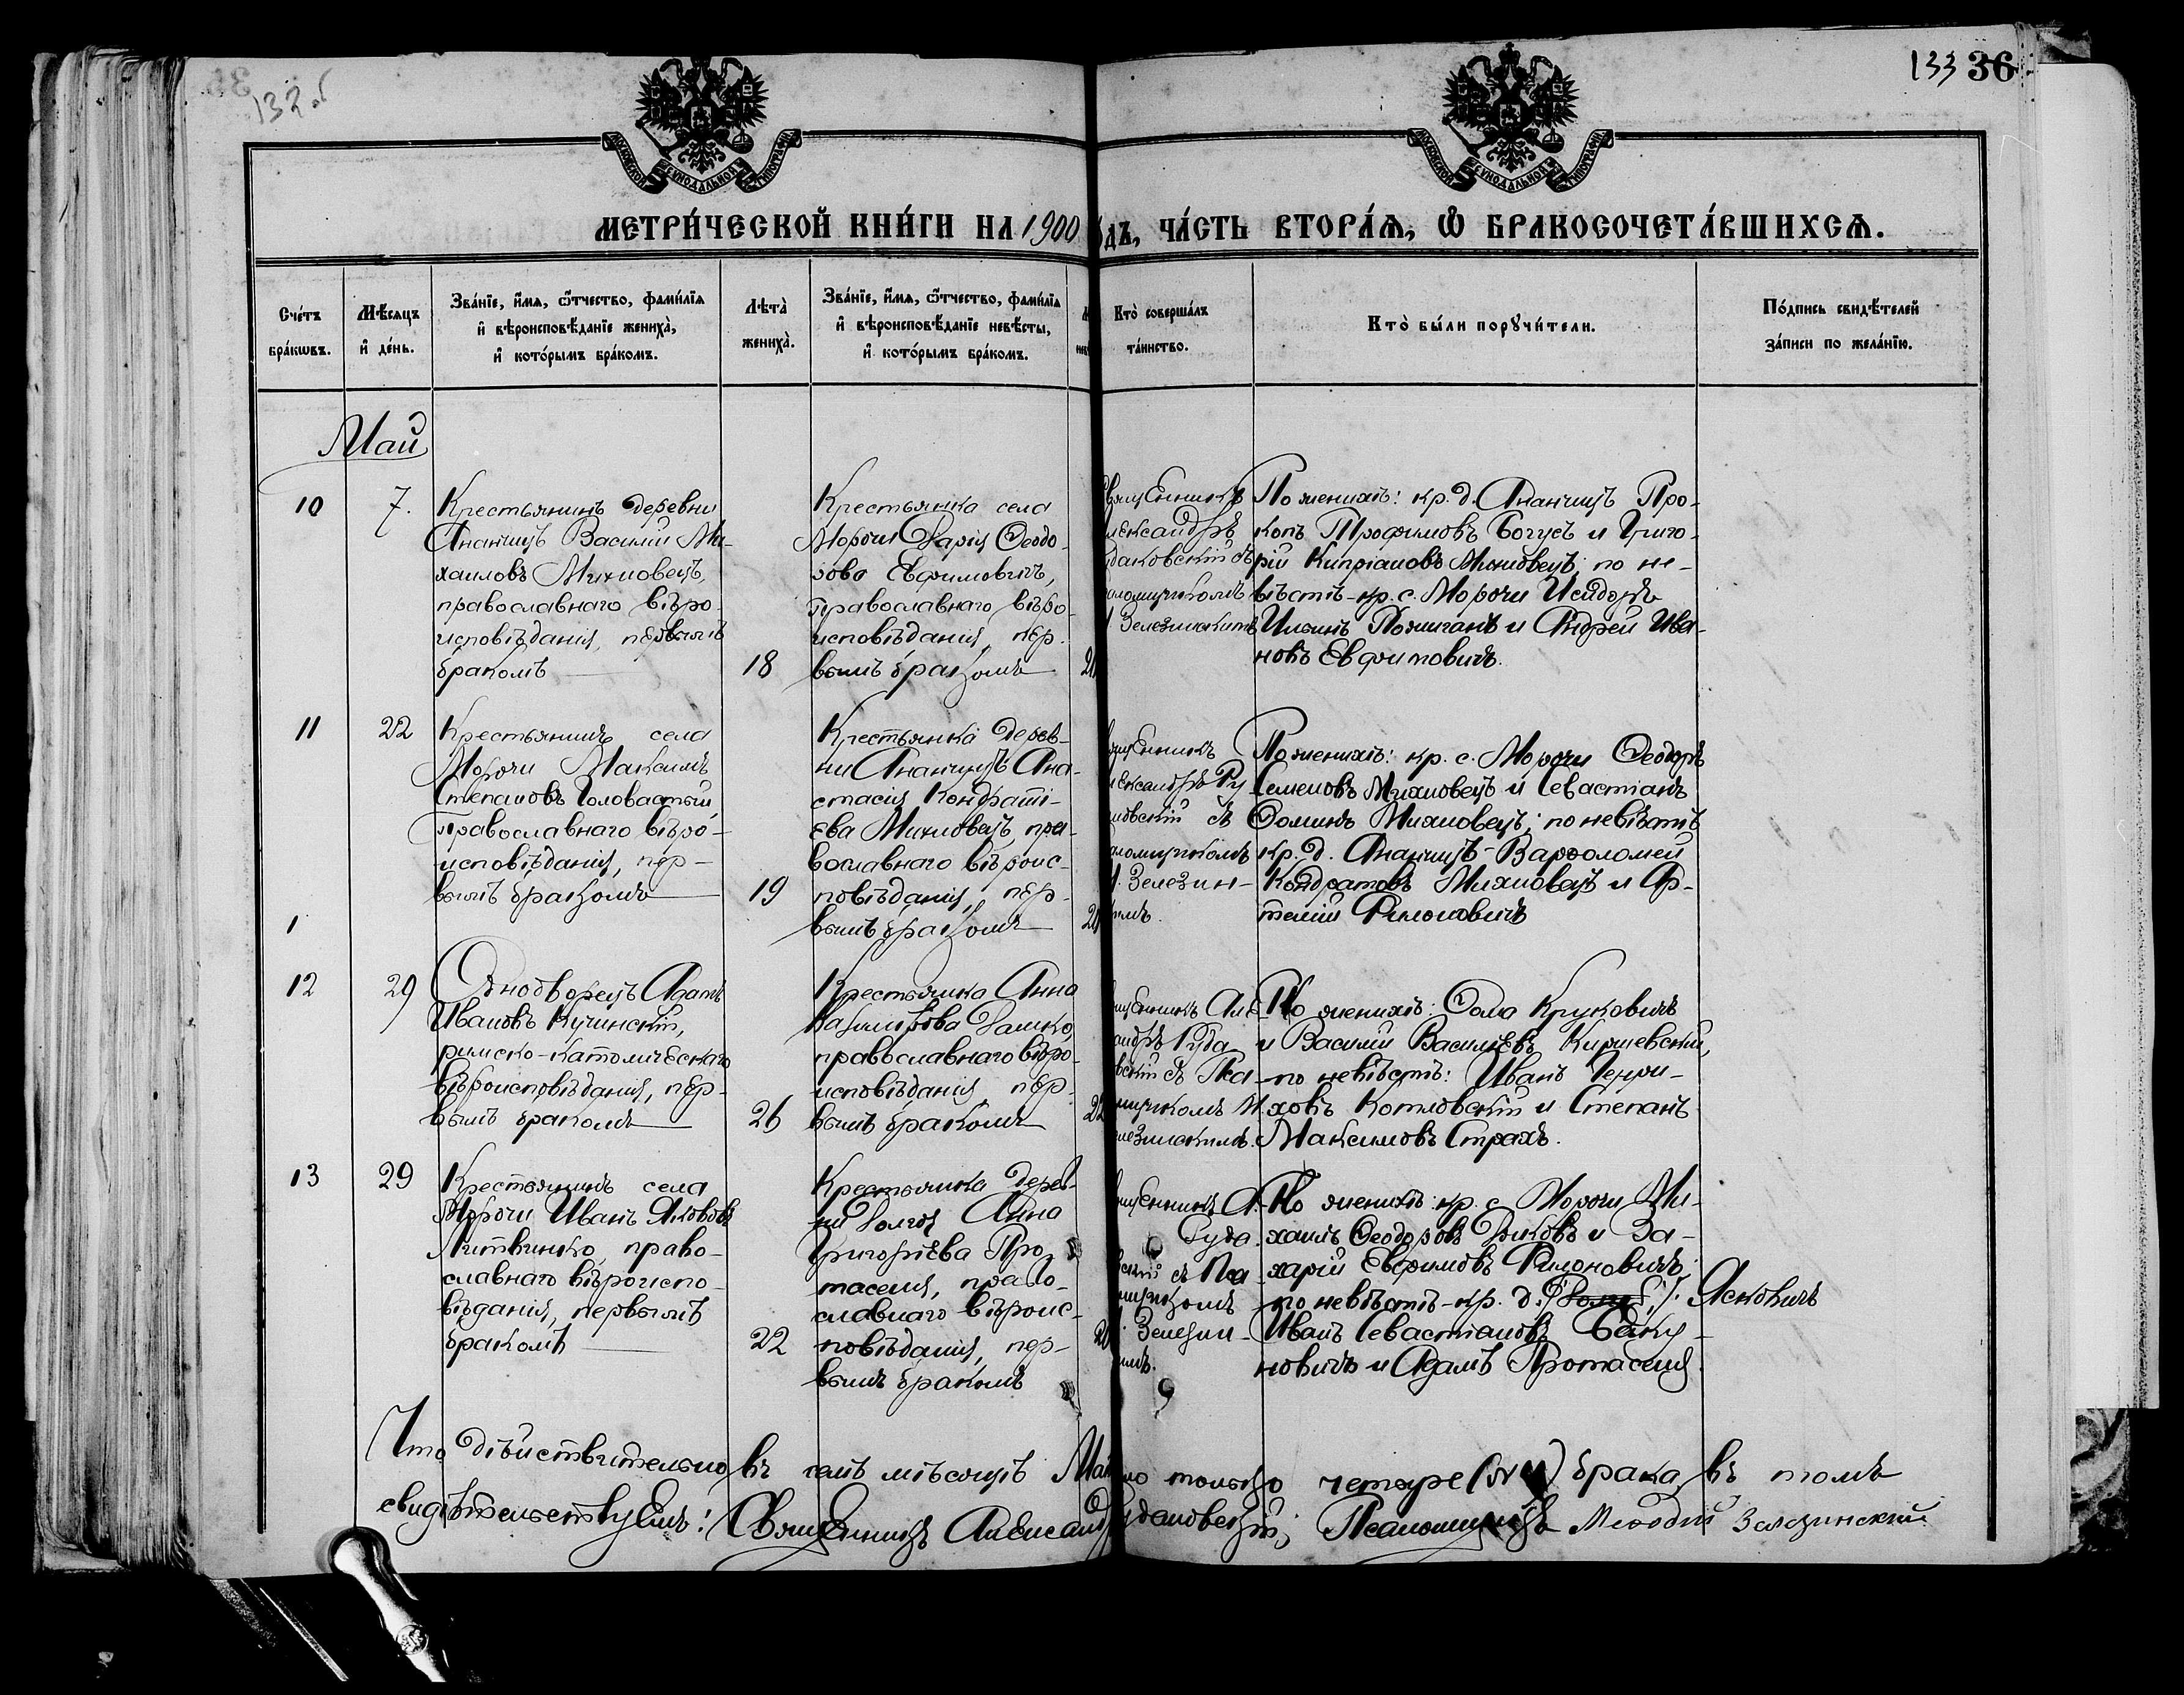 132об
133 36
МОСКОВСКОЙ СѴНОДАЛЬНОЙ ТИПОГРАФІИ
МОСКОВСКОЙ СѴНОДАЛЬНОЙ ТИПОГРАФІИ
МЕТРИ́ЧЕСКОЙ КНИ́ГИ НА 1900 ДЪ, ЧА́СТЬ ВТОРА́Ѧ, Ѽ БРАКОСОЧЕТА́ВШИХСѦ.
Сче́тъ
бра́кѡвъ.
Мѣ́сяцъ
и҆ де́нь.
Зва́нїе, и҆́мѧ, ѻ҆́тчество, фами́лїѧ
и҆ вѣроисповѣ́данїе жениха̀,
и҆ кото́рымъ бра́комъ.
Лѣта̀
жениха̀.
Зва́нїе, и҆́мѧ, ѻ҆́тчество, фами́лїѧ
и҆ вѣроисповѣ́данїе невѣ́сты,
и҆ кото́рымъ бра́комъ.
Кто̀ соверша́лъ
та́инство.
Кто̀ бы́ли порꙋчи́тели.
По́дпись свидѣ́телей
за́писи по жела́нїю.
Май
10
7.
Крестьянинъ деревни
Ананчицъ Василій Ми-
хаиловъ Михновецъ,
православнаго вѣро-
исповѣданія, первымъ
бракомъ
18
Крестьянка села
Морочи Дарія Ѳеодо-
рова Евфимовичъ,
православнаго вѣро-
исповѣданія, пер-
вымъ бракомъ
священникъ
лександръ
дановскій съ
аломщикомъ
Зелезинскимъ
По женихѣ: кр. д. Ананчицъ Про-
копъ Трофимовъ Богусъ и Григо-
рій Кипріановъ Михновецъ; по не-
вѣстѣ - кр. с. Морочи Исидоръ
Ильинъ и Андрей Ива-
новъ Евфимовичъ.
11
22
Крестьянинъ села
Морочи Максимъ
Степановъ Головастый
православнаго вѣро-
исповѣданія, пер-
вымъ бракомъ
19
Крестьянка дерев-
ни Ананчицъ Ана-
стасія Кондраті-
ева Михновецъ, пра-
вославнаго вѣроис-
повѣданія, пер-
вымъ бракомъ
ященникъ
лександръ Ру
новскій съ
аломщикомъ
Зелезин-
имъ.
По женихѣ: кр. с. Морочи Ѳеодоръ
Семеновъ Михновецъ и Севастіанъ
Ѳоминъ Михновецъ; по невѣстѣ
кр. д. Ананчицъ - Варфоломей
Кондратовъ Михновецъ и Ар-
темій Филоновичъ
1
12
29
Однодворецъ Адамъ
Ивановъ Кучинскій,
римско-католическаго
вѣроисповѣданія, пер-
вымъ бракомъ
26
Крестьянка Анна
Казимірова Дашко,
православнаго вѣро-
исповѣданія, пер-
вымъ бракомъ
22
ященникъ Але
андръ Руда
вскій съ Пса
мщикомъ М.
лезинскимъ.
По женихѣ: Ѳома Круковичъ
и Василій Васильевъ Киршевскій,
по невѣстѣ: Иванъ Генри-
ховъ Котловскій и Степанъ
Максимовъ Страхъ.
13
29
Крестьянинъ села
Морочи Иванъ Якововъ
Литвинко, право-
славнаго вѣроиспо-
вѣданія, первымъ
бракомъ
22
Крестьянка дерев-
ни Долгой Анна
Григоріева Про-
тасеня, право-
славнаго вѣроис-
повѣданія, пер-
вымъ бракомъ
ященникъ А.
Руда
вскій съ Пса
мщикомъ
Зелезин-
имъ.
По женихѣ: кр. с. Морочи Ми-
хаилъ Ѳеодоровъ и За-
харій Евфимовъ Филоновичъ;
по невѣстѣ - кр. д. Ясковичъ
Иванъ Севастіановъ Баку-
новичъ и Адамъ Протасеня.
Что дѣйствительно въ семъ мѣсяцѣ Маѣ только четыре (№4) брака, въ томъ
свидѣтельствуемъ: Священникъ Александ удановскій; Псаломщикъ Меѳодій Зелезинскій